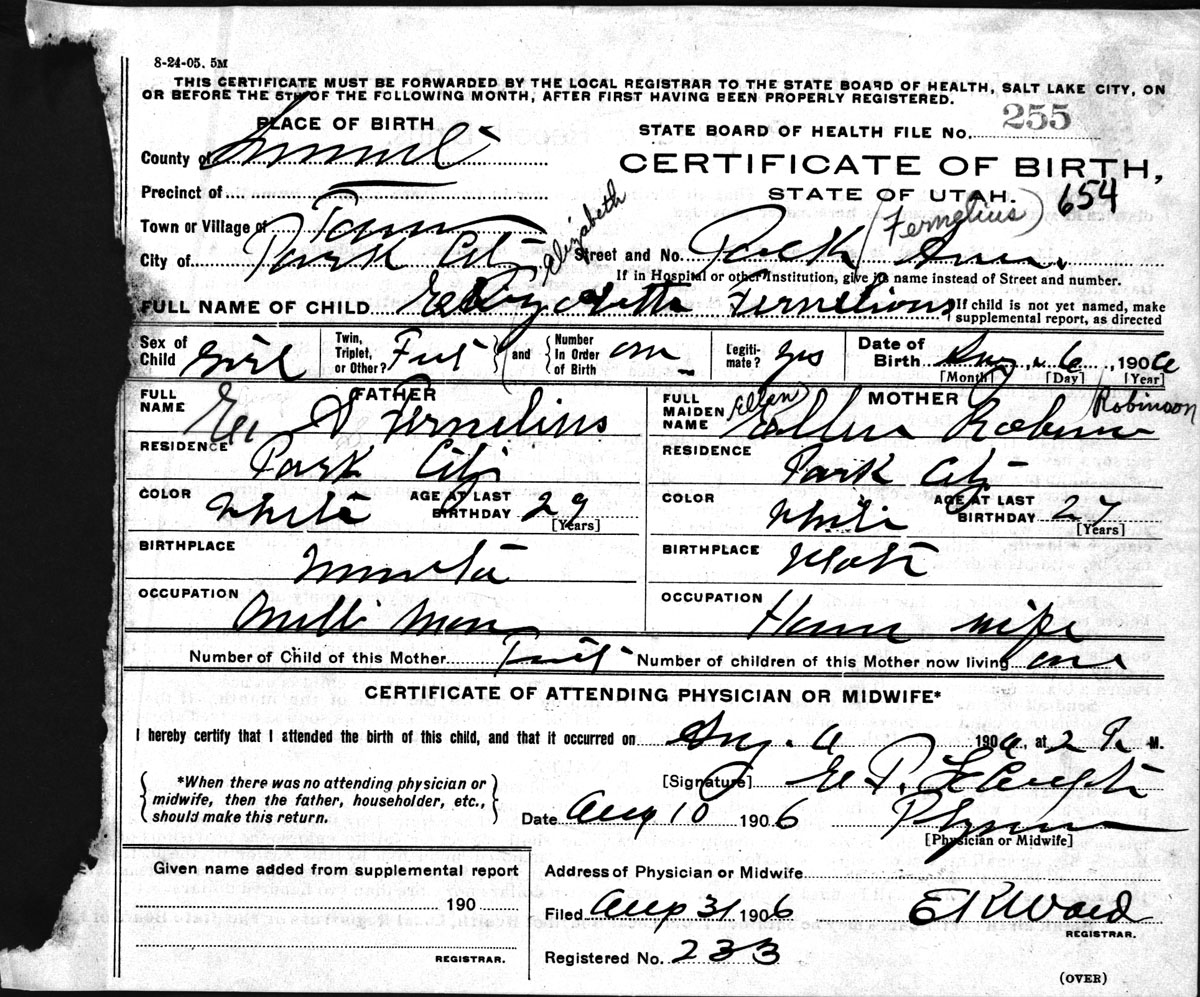 8-24-05. 5M
THIS CERTIFICATE MUST BE FORWARDED BY THE LOCAL REGISTRAR TO THE STATE BOARD OF HEALTH, SALT LAKE CITY, ON
OR BEFORE THE 5TH OF THE FOLLOWING MONTH, AFTER FIRST HAVING BEEN PROPERLY REGISTERED.
PLACE OF BIRTH
STATE BOARD OF HEALTH FILE No. 255
County of Summit
CERTIFICATE OF BIRTH,
STATE OF UTAH. 654
Precinct of
Town or Village of
(Fernelius)
Elizabeth
City of Park City Street and No. Park Ave.
If in Hospital or other Institution, give its name instead of Street and number.
FULL NAME OF CHILD Fernelious If child is not yet named, make
supplemental report, as directed
Sex of Child Girl Twin, Triplet, or Other? and Number In Order of Birth one Legiti-mate? yes Date of Birth Aug 6, 1906
[Month] [Day] [Year]
FATHER
FULL NAME A Fernelius
MOTHER
FULL MAIDEN NAME Ellen Robinson
RESIDENCE Park City
RESIDENCE Park City
COLOR White AGE AT LAST BIRTHDAY 29 [Years]
COLOR White AGE AT LAST BIRTHDAY 27 [Years]
BIRTHPLACE
BIRTHPLACE Utah
OCCUPATION Mill Man
OCCUPATION House wife
Number of Child of this Mother First Number of children of this Mother now living one
CERTIFICATE OF ATTENDING PHYSICIAN OR MIDWIFE*
I hereby certify that I attended the birth of this child, and that it occurred on Aug. 6 1906, at 2 P. M.
*When there was no attending physician or
midwife, then the father, householder, etc.,
should make this return.
[Signature] E. P.
Date Aug 10 1906
[Physician or Midwife]
Given name added from supplemental report
190
REGISTRAR.
Address of Physician or Midwife
Filed Aug 31 1906 E K Ward
REGISTRAR.
Registered No. 233
(OVER)